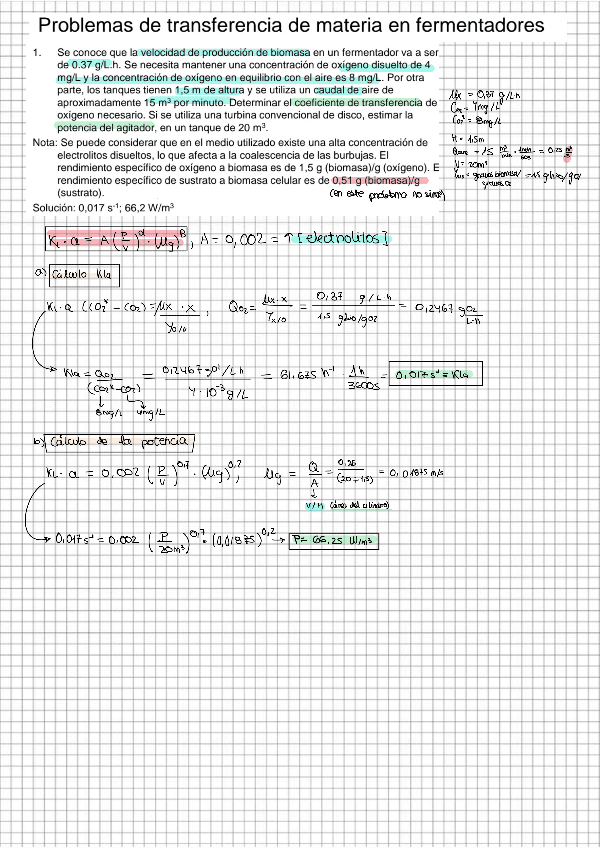 Problemas de transferencia de materia en fermentadores
1. Se conoce que la velocidad de producción de biomasa en un fermentador va a ser
de 0.37 g/L.h. Se necesita mantener una concentración de oxígeno disuelto de 4
mg/L y la concentración de oxígeno en equilibrio con el aire es 8 mg/L. Por otra
parte, los tanques tienen 1,5 m de altura y se utiliza un caudal de aire de
aproximadamente 15 m³ por minuto. Determinar el coeficiente de transferencia de
oxígeno necesario. Si se utiliza una turbina convencional de disco, estimar la
potencia del agitador, en un tanque de 20 m³.
Nota: Se puede considerar que en el medio utilizado existe una alta concentración de
electrolitos disueltos, lo que afecta a la coalescencia de las burbujas. El
rendimiento específico de oxígeno a biomasa es de 1,5 g (biomasa)/g (oxígeno). E
rendimiento específico de sustrato a biomasa celular es de 0,51 g (biomasa)/g
(sustrato).
(en este problema no sirve)
Solución: 0,017 s⁻¹; 66,2 W/m³
μx = 0,37 g/L h
Co₂ = 4mg/L
Co₂* = 8mg/L
H = 1,5m
= 15 m³/min · 1min/60s = 0,25 m³/s
V = 20m³
= gramos biomasa/gramos O₂ = 1,5 g bio/g O₂
KL·a = A (P/V)^α · (μg)^β, A = 0,002 = ↑ [electrolitos]
a) Cálculo Kla
KL·a (CO₂* - CO₂) = μx · x / Yx/o, QO₂ = μx·x / Yx/o = 0,37 g/L h / 1,5 g bio/g O₂ = 0,2467 g O₂/L·h
Kla = QO₂ / (CO₂* - CO₂) = 0,2467 g O₂/L h / 4·10⁻³ g/L = 61,675 h⁻¹ · 1h/3600s = 0,017 s⁻¹ = Kla
8mg/L 4mg/L
b) Cálculo de la potencia
KL·a = 0,002 (P/V)^0,7 · (μg)^0,2, μg = Q/A = 0,25/(20÷1,5) = 0,01875 m/s
V/H (área del cilindro)
0,017 s⁻¹ = 0.002 (P/20m³)^0,7 · (0,01875)^0,2 → P = 66,25 W/m³